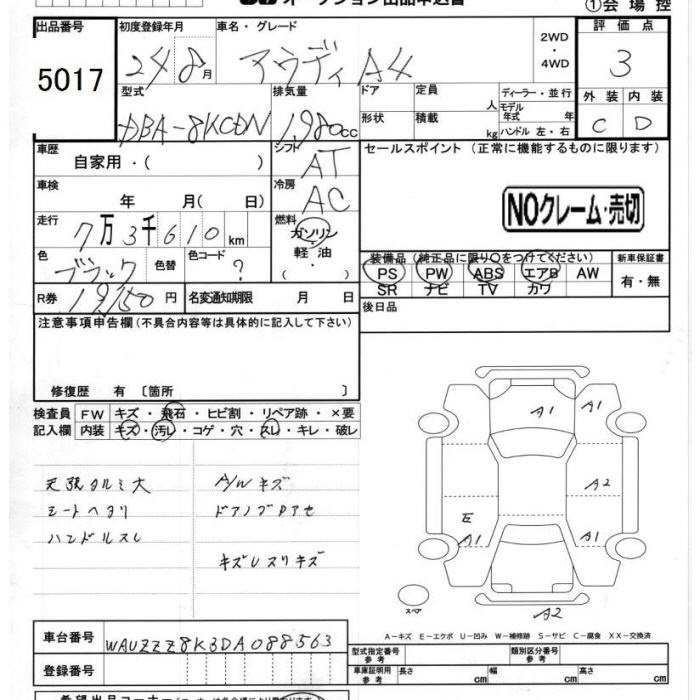 オークション出品申込書
①会場控
出品番号
5017
初度登録年月
24 8月
車名・グレード
アウディ A4
2WD
・
4WD
評価点
3
外装 内装
C D
型式
DBA-8KCDN
排気量
1980cc
ドア
形状
定員
人
積載
kg
ディーラー・並行
モデル年式 年
ハンドル 左・右
車歴
自家用・( )
シフト
AT
セールスポイント (正常に機能するものに限ります)
NOクレーム・売切
車検
年 月( 日)
冷房
AC
走行
7万3千610km
燃料
ガソリン
軽油
・( )
色
ブラック
色替
色コード
?
装備品(純正品に限り〇をつけてください)
PS PW ABS エアB AW
SR ナビ TV カワ
新車保証書
有・無
R券
円
名変通知期限 月 日
後日品
注意事項申告欄(不具合内容等は具体的に記入して下さい)
修復歴 有 〔箇所 〕
検査員記入欄
FW キズ・飛石・ヒビ割・リペア跡・×要
内装 キズ・汚レ・コゲ・穴・スレ・キレ・破レ
天張タルミ大
シートヘタリ
ハンドルスレ
A/Wキズ
ドアノブロアセ
キズUスリキズ
A1
A1
A2
A1
A1
A2
スペア
A-キズ E-エクボ U-凹み W-補修跡 S-サビ C-腐食 XX-交換済
車台番号
WAUZZZ8K3DA088563
登録番号
型式指定番号
参考
類別区分番号
参考
車庫証明用
参考
長さ cm
幅 cm
高さ cm